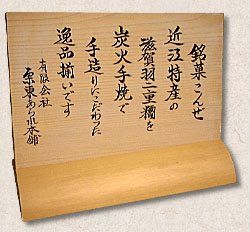 銘菓こんせ
近江特産の
滋賀羽二重糯を
炭火手焼で
手造りにこだわった
逸品揃いです
有限会社
栗東あられ本舗